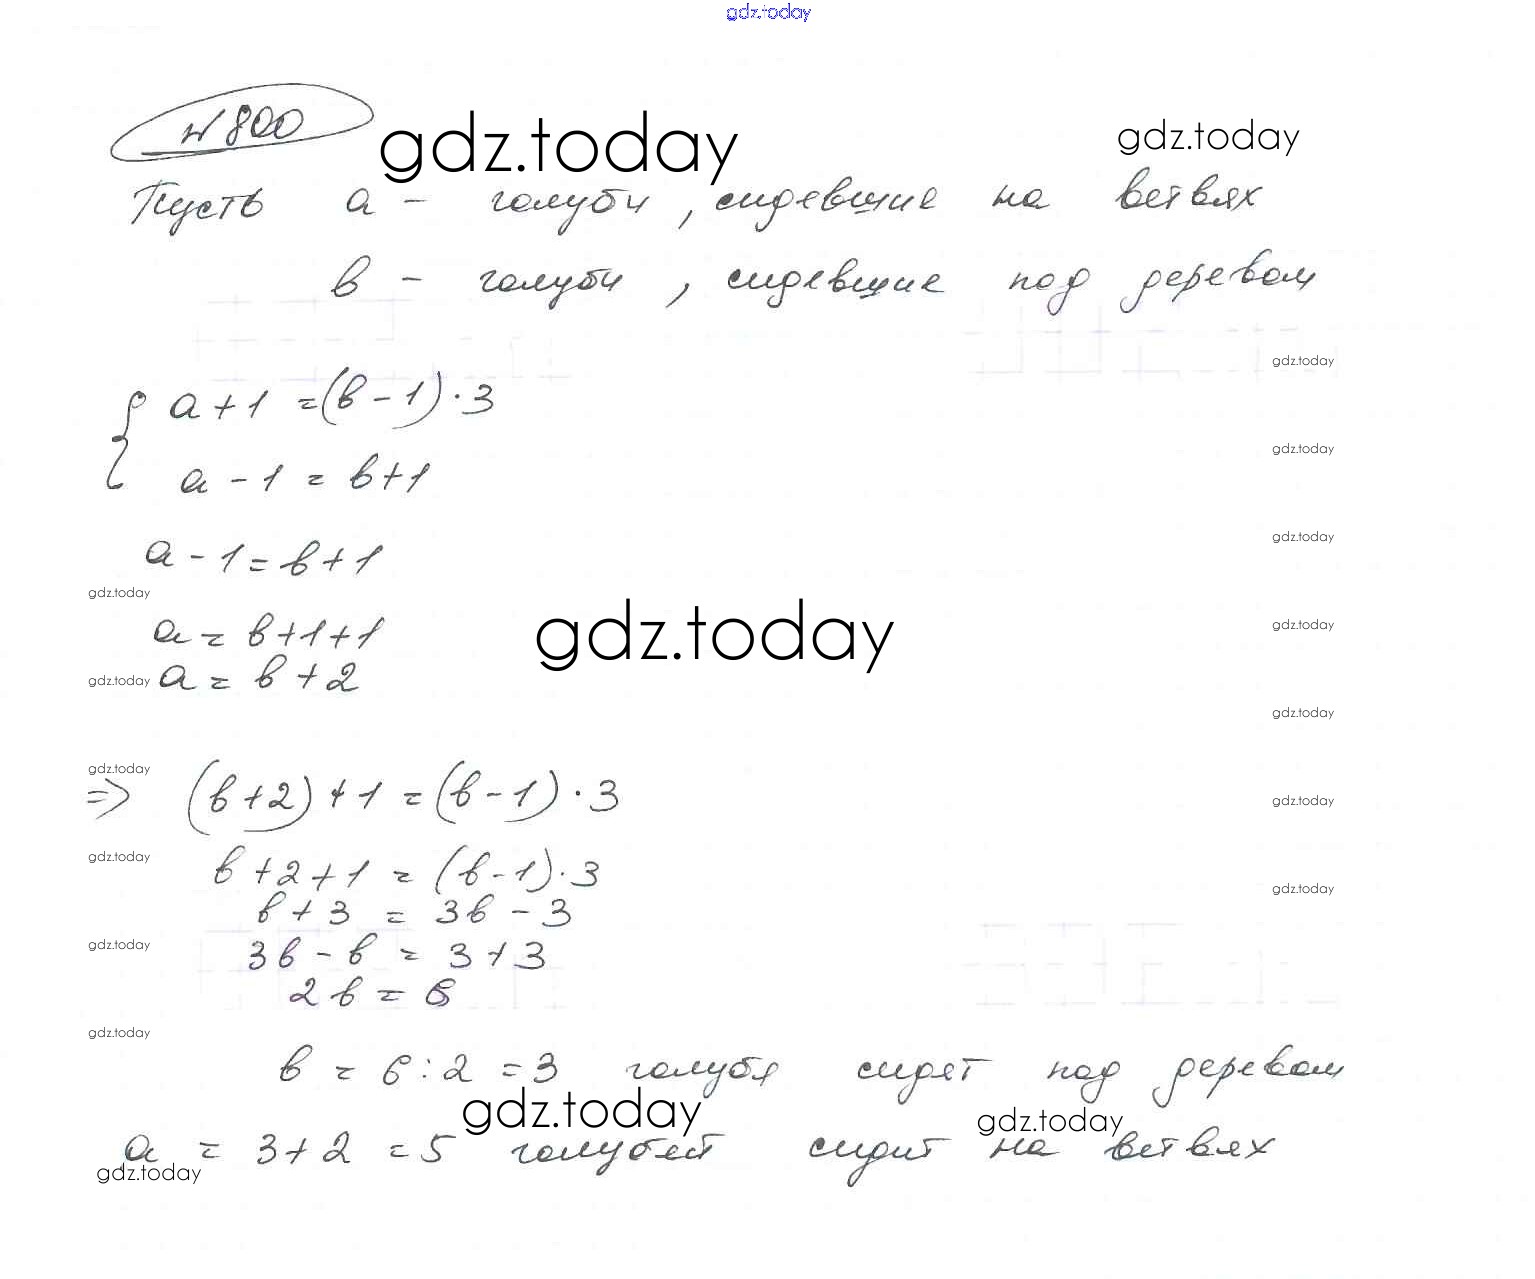 gdz.today
№800
gdz.today
gdz.today
Пусть а - голуби, сидевшие на ветвях
в - голуби, сидевшие под деревом
gdz.today
{ а + 1 = (в - 1) · 3
gdz.today
а - 1 = в + 1
gdz.today
а - 1 = в + 1
gdz.today
gdz.today
gdz.today
а = в + 1 + 1
gdz.today
а = в + 2
gdz.today
gdz.today
=> (в + 2) + 1 = (в - 1) · 3
gdz.today
gdz.today
в + 2 + 1 = (в - 1) · 3
gdz.today
в + 3 = 3в - 3
gdz.today
3в - в = 3 + 3
2в = 6
gdz.today
в = 6 : 2 = 3 голубя сидят под деревом
gdz.today
gdz.today
а = 3 + 2 = 5 голубей сидит на ветвях
gdz.today